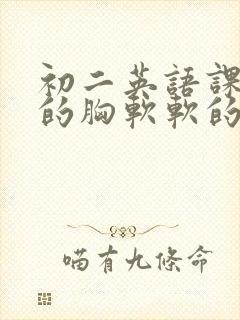 初二英語課
的胸軟軟的
喵有九條命